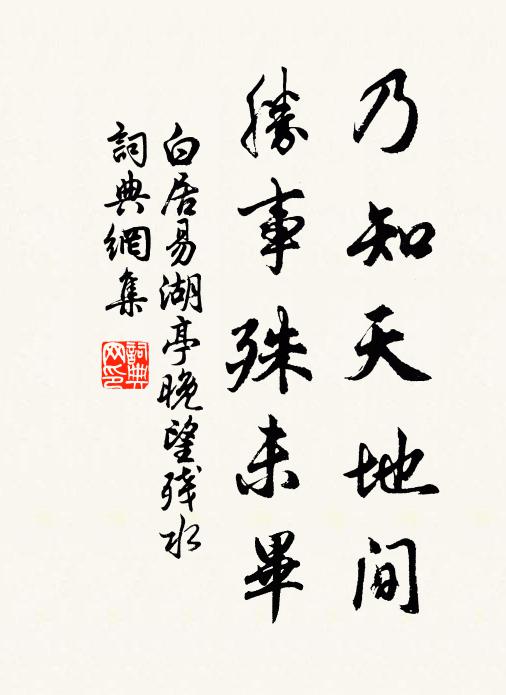 乃知天地间
勝事殊未畢
白居易湖亭晚望残水
詞典網集
詞典网印